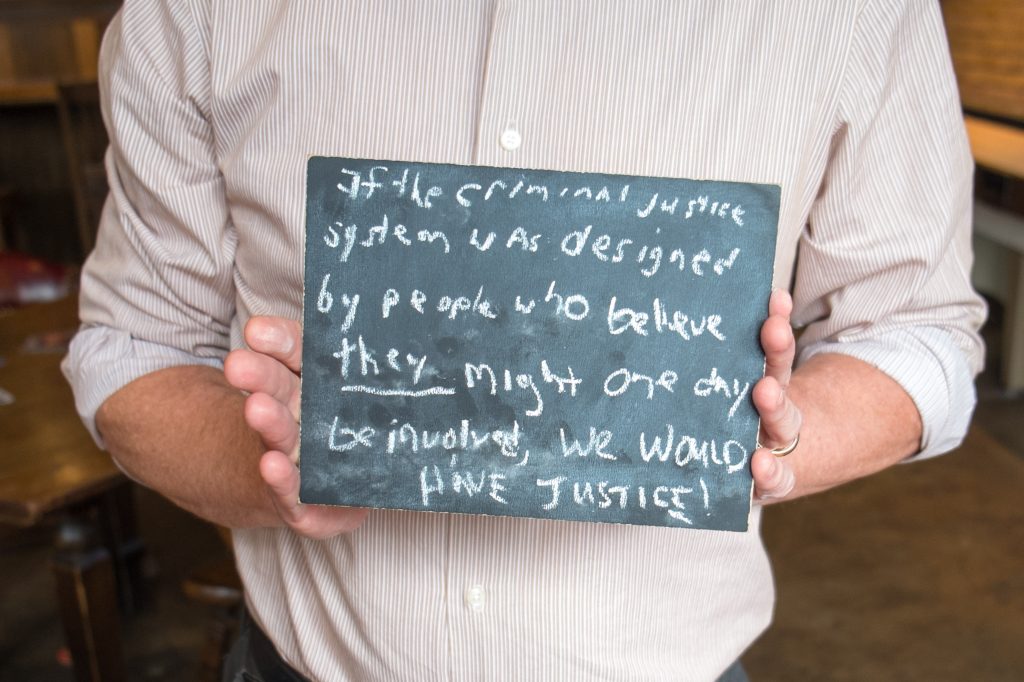 If the criminal justice
system was designed
by people who believe
they might one day
be involved, we would
HAVE JUSTICE!